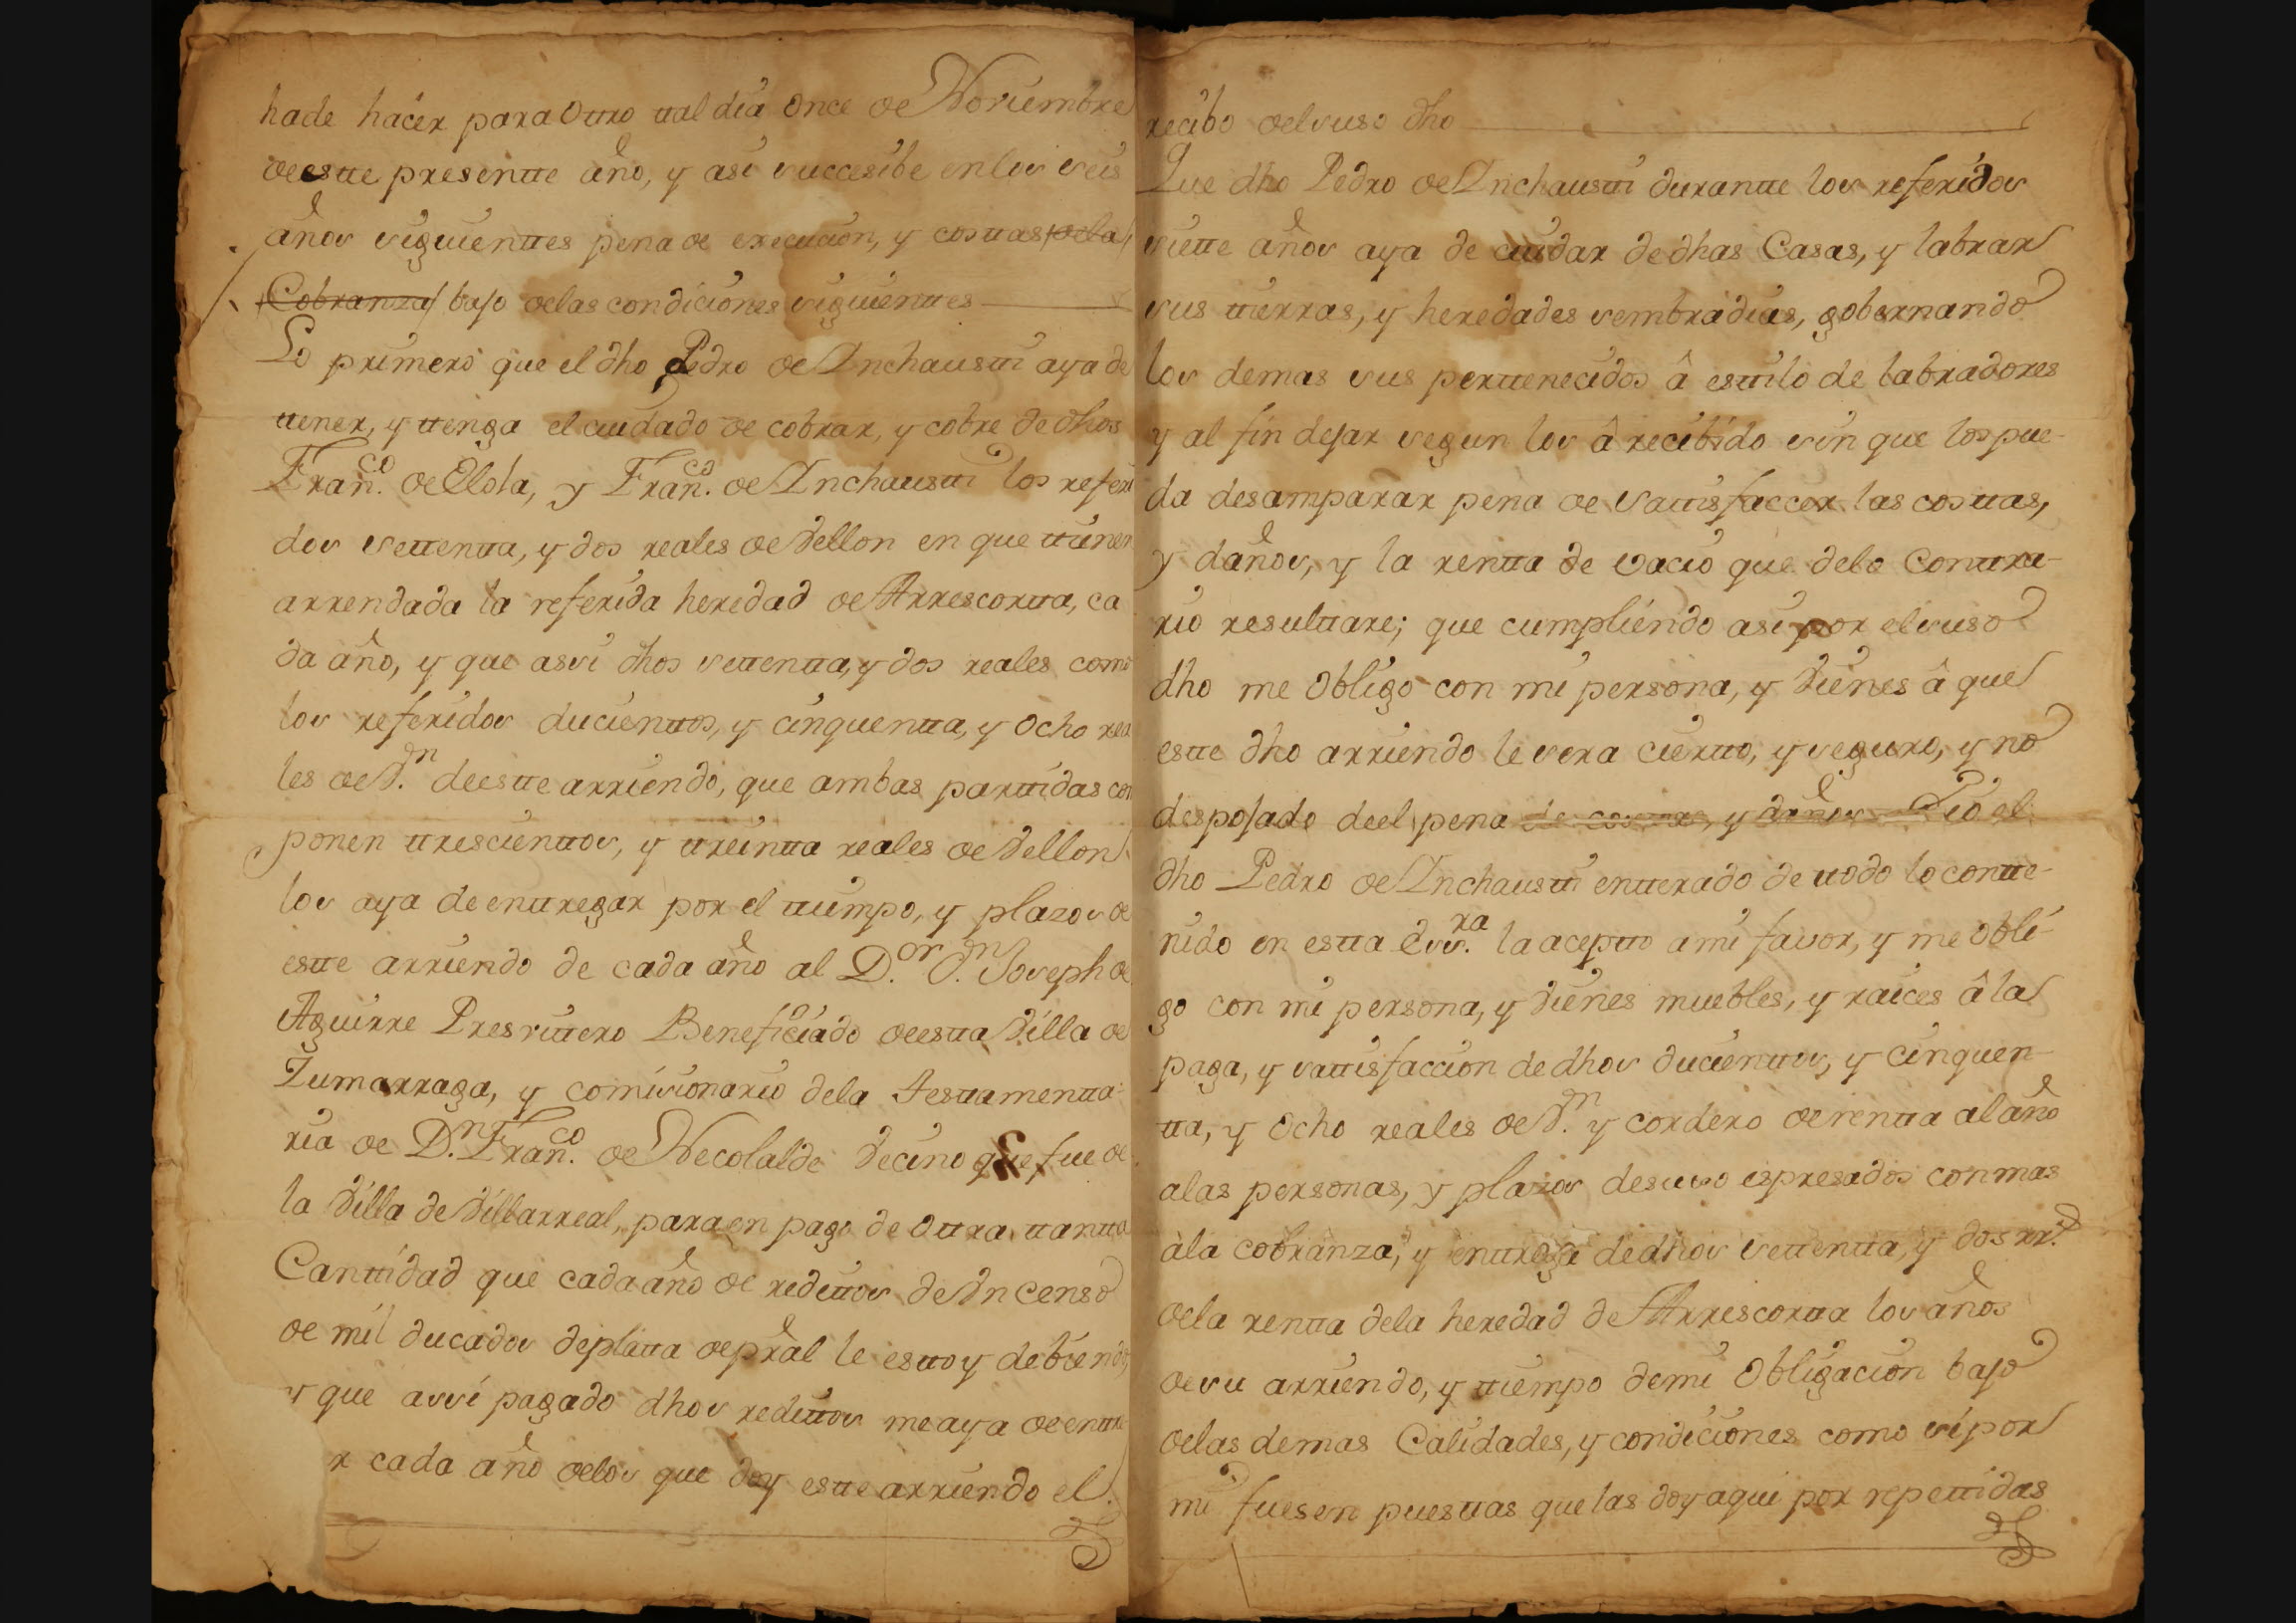 hade hacer para Otro tal dia Once de Noviembre
de este presente año, y asi succesibe en los seis
años siguientes pena de execucion, y costas de la
Cobranza bajo de las condiciones siguientes
Lo primero que el dho Pedro de Inchausti aya de
tener, y tenga el cuidado de cobrar, y cobre de dhos
Fran.co de Elola, y Fran.co de Inchausti los referi
dos settenta, y dos reales de Vellon en que tienen
arrendada la referida heredad de Arrescorta, ca
da año, y que assi dhos settenta, y dos reales como
los referidos ducientos, y cinquenta, y Ocho rea
les de V.n de este arriendo, que ambas partidas com
ponen trescientos, y treinta reales de Vellon
los aya de entregar por el tiempo, y plazos de
este arriendo de cada año al D.or D.n Joseph de
Aguirre Presvitero Beneficiado de esta Villa de
Zumarraga, y comisionario de la Testamenta
ria de D.n Fran.co de Necolalde Vecino que fue de
la Villa de Villarreal, para en pago de Otra tanta
Cantidad que cada año de reditos de Un Censo
de mil ducados de plata de pral le estoy debiendo,
y que assi pagado dhos reditos me aya de entre
r cada año de los que doy este arriendo el
recibo del suso dho
Que dho Pedro de Inchausti durante los referidos
siette años aya de cuidar de dhas Casas, y labrar
sus tierras, y heredades sembradias, gobernando
los demas sus pertenecidos â estilo de labradores
y al fin dejar segun los â recibido sin que los pue-
da desamparar pena de Sattisfaccer las costas,
y daños, y la renta de vacio que de lo Contra-
rio resultare; que cumpliendo asi por el suso
dho me Obligo con mi persona, y Vienes â que
este dho arriendo le sera cierto, y seguro, y no
despojado de el pena de costas, y daños Yo el
dho Pedro de Inchausti enterado de todo lo conte-
nido en esta Ess.ra la acepto a mi favor, y me Obli-
go con mi persona, y Vienes muebles, y raices â la
paga, y sattisfaccion de dhos ducientos, y cinquen-
ta, y Ocho reales de V.n y cordero de renta al año
a las personas, y plazos desuso espresados con mas
à la cobranza, y entrega de dhos settenta, y dos rr.s
de la renta de la heredad de Arrescorta los años
de su arriendo, y tiempo de mi Obligacion bajo
de las demas Calidades, y condiciones como si por
mi fuesen puestas que las doy aqui por repetidas